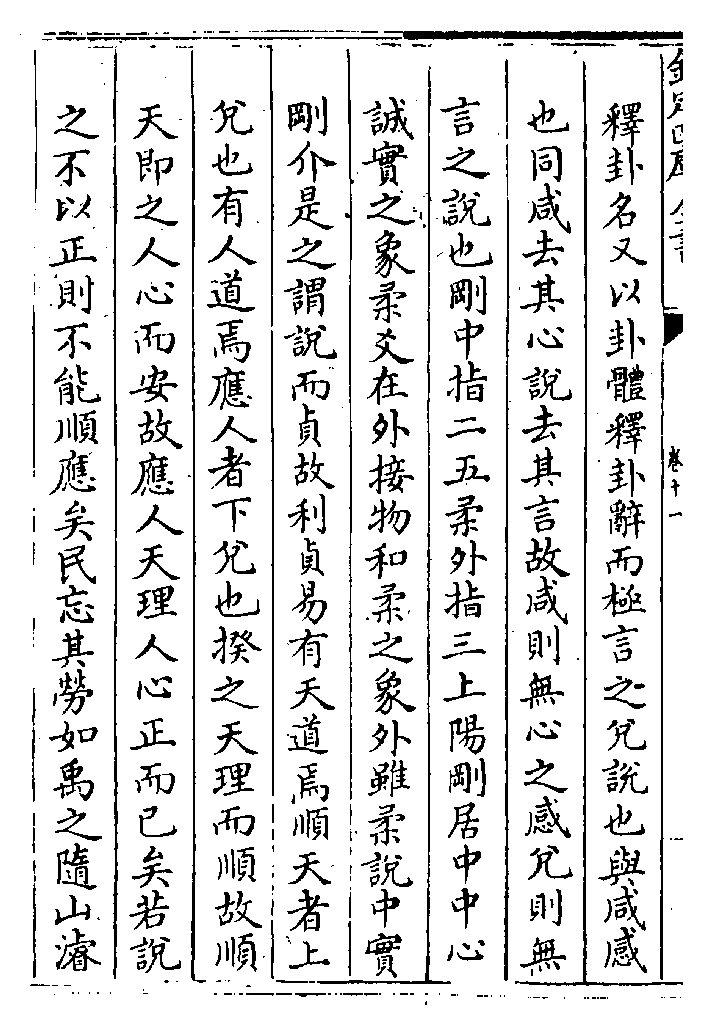 欽定四庫全書
卷十一
釋卦名又以卦體釋卦辭而極言之兌説也與咸感
也同咸去其心説去其言故咸則無心之感兌則無
言之説也剛中指二五柔外指三上陽剛居中中心
誠實之象柔爻在外接物和柔之象外雖柔説中實
剛介是之謂説而貞故利貞易有天道焉順天者上
兌也有人道焉應人者下兌也揆之天理而順故順
天即之人心而安故應人天理人心正而已矣若説
之不以正則不能順應矣民忘其勞如禹之隨山濬